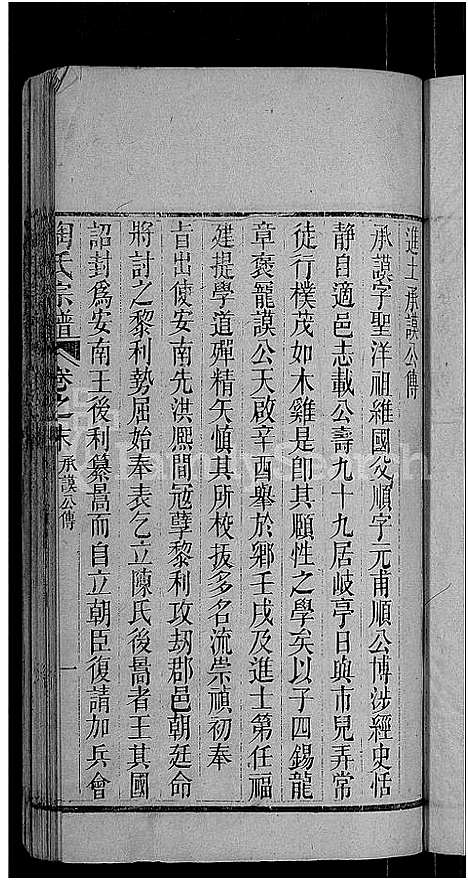 進士承謨公傳
承謨字聖洋祖維國父順字元甫順公博涉經史恬
静自適邑志載公壽九十九居岐亭日與市兒弄常
徒行樸茂如木雞是卽其頤性之學矣以子四錫龍
章褒寵謨公天啟辛酉舉於鄉壬戌及進士第任福
建提學道殫精矢慎其所校拔多名流崇禎初奉
旨出使安南先洪熙間冠孽黎利攻刼郡邑朝廷命
將討之黎利勢屈始奉表乞立陳氏後暠者王其國
詔封為安南王後利纂暠而自立朝臣復請加兵會
陶氏宗譜 卷之末 承謨公傳 一